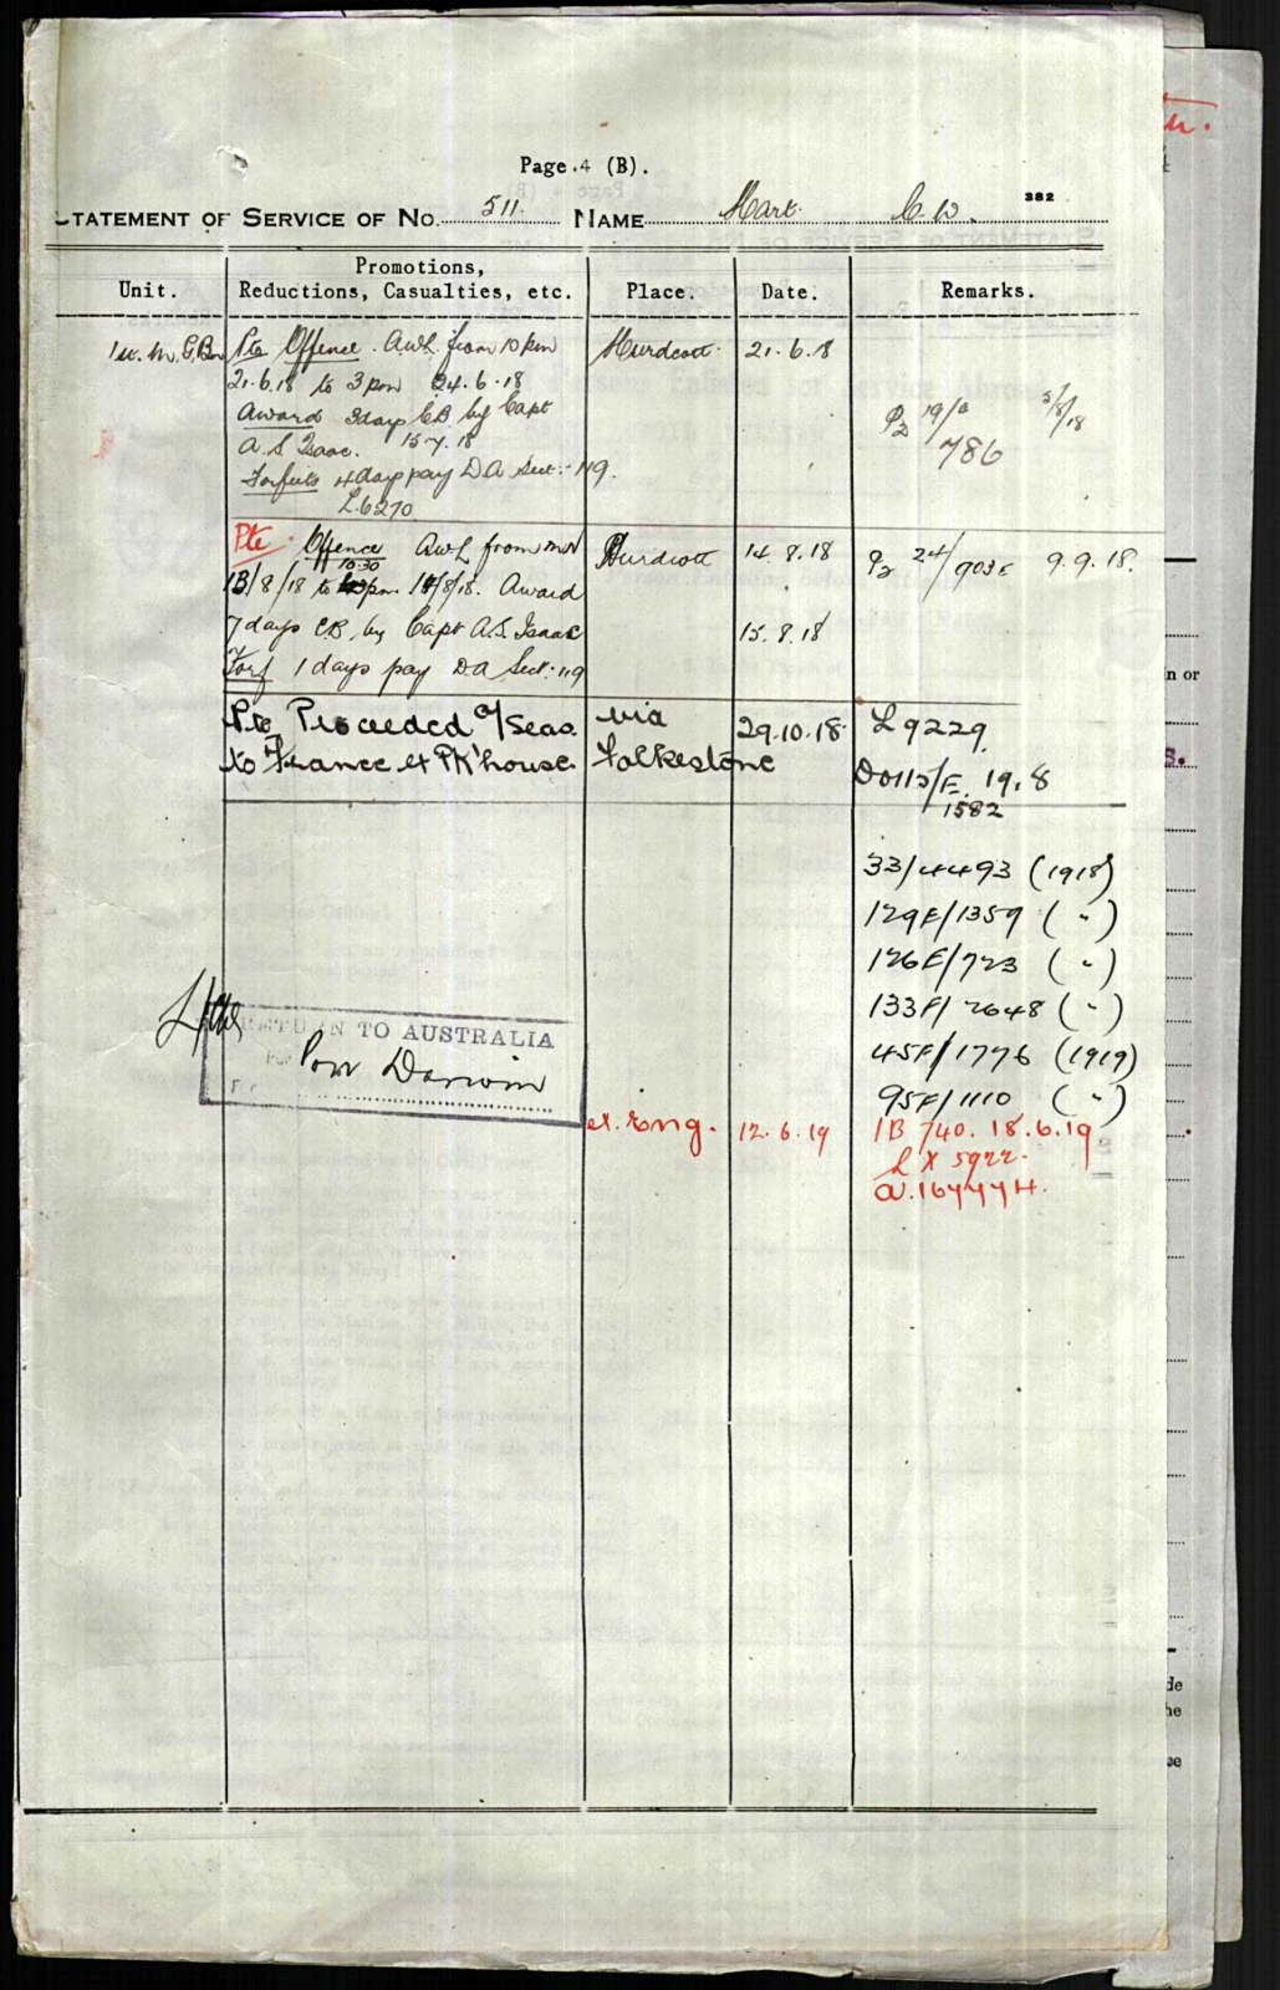 Page 4 (B).
382
STATEMENT OF SERVICE OF No. 511. NAME Hart. C. W.
Unit.
Promotions,
Reductions, Casualties, etc.
Place.
Date.
Remarks.
Pte Offence. AWL from 10 pm
21.6.18 to 3 pm 24.6.18
Award 3days CB by Capt
A. S Isaac. 15.7.18
Forfeits 4 days pay DA Sect:- 119.
L.6270
Hurdcott
21.6.18
19/
786
5/8/18
Pte Offence AWL from mn
10.30
13/8/18 to pm 14/8/18. Award
7 days CB. by Capt A.S. Isaac
Forf 1 days pay DA Sect: 119
Hurdcott
14.8.18
15.8.18
24/903E 9.9.18.
Pte Proceeded O/Seas.
to France ex Pk'house.
via
Folkestone
29.10.18
L9229
DO115/E. 19.8
1582
33/4493 (1918)
129E/1359 (")
126E/723 (")
133F/2648 (")
45F/1776 (1919)
95F/1110 (")
RETURN TO AUSTRALIA
Port Darwin
ex. Eng.
12.6.19
1B 740. 18.6.19
L X 5922.